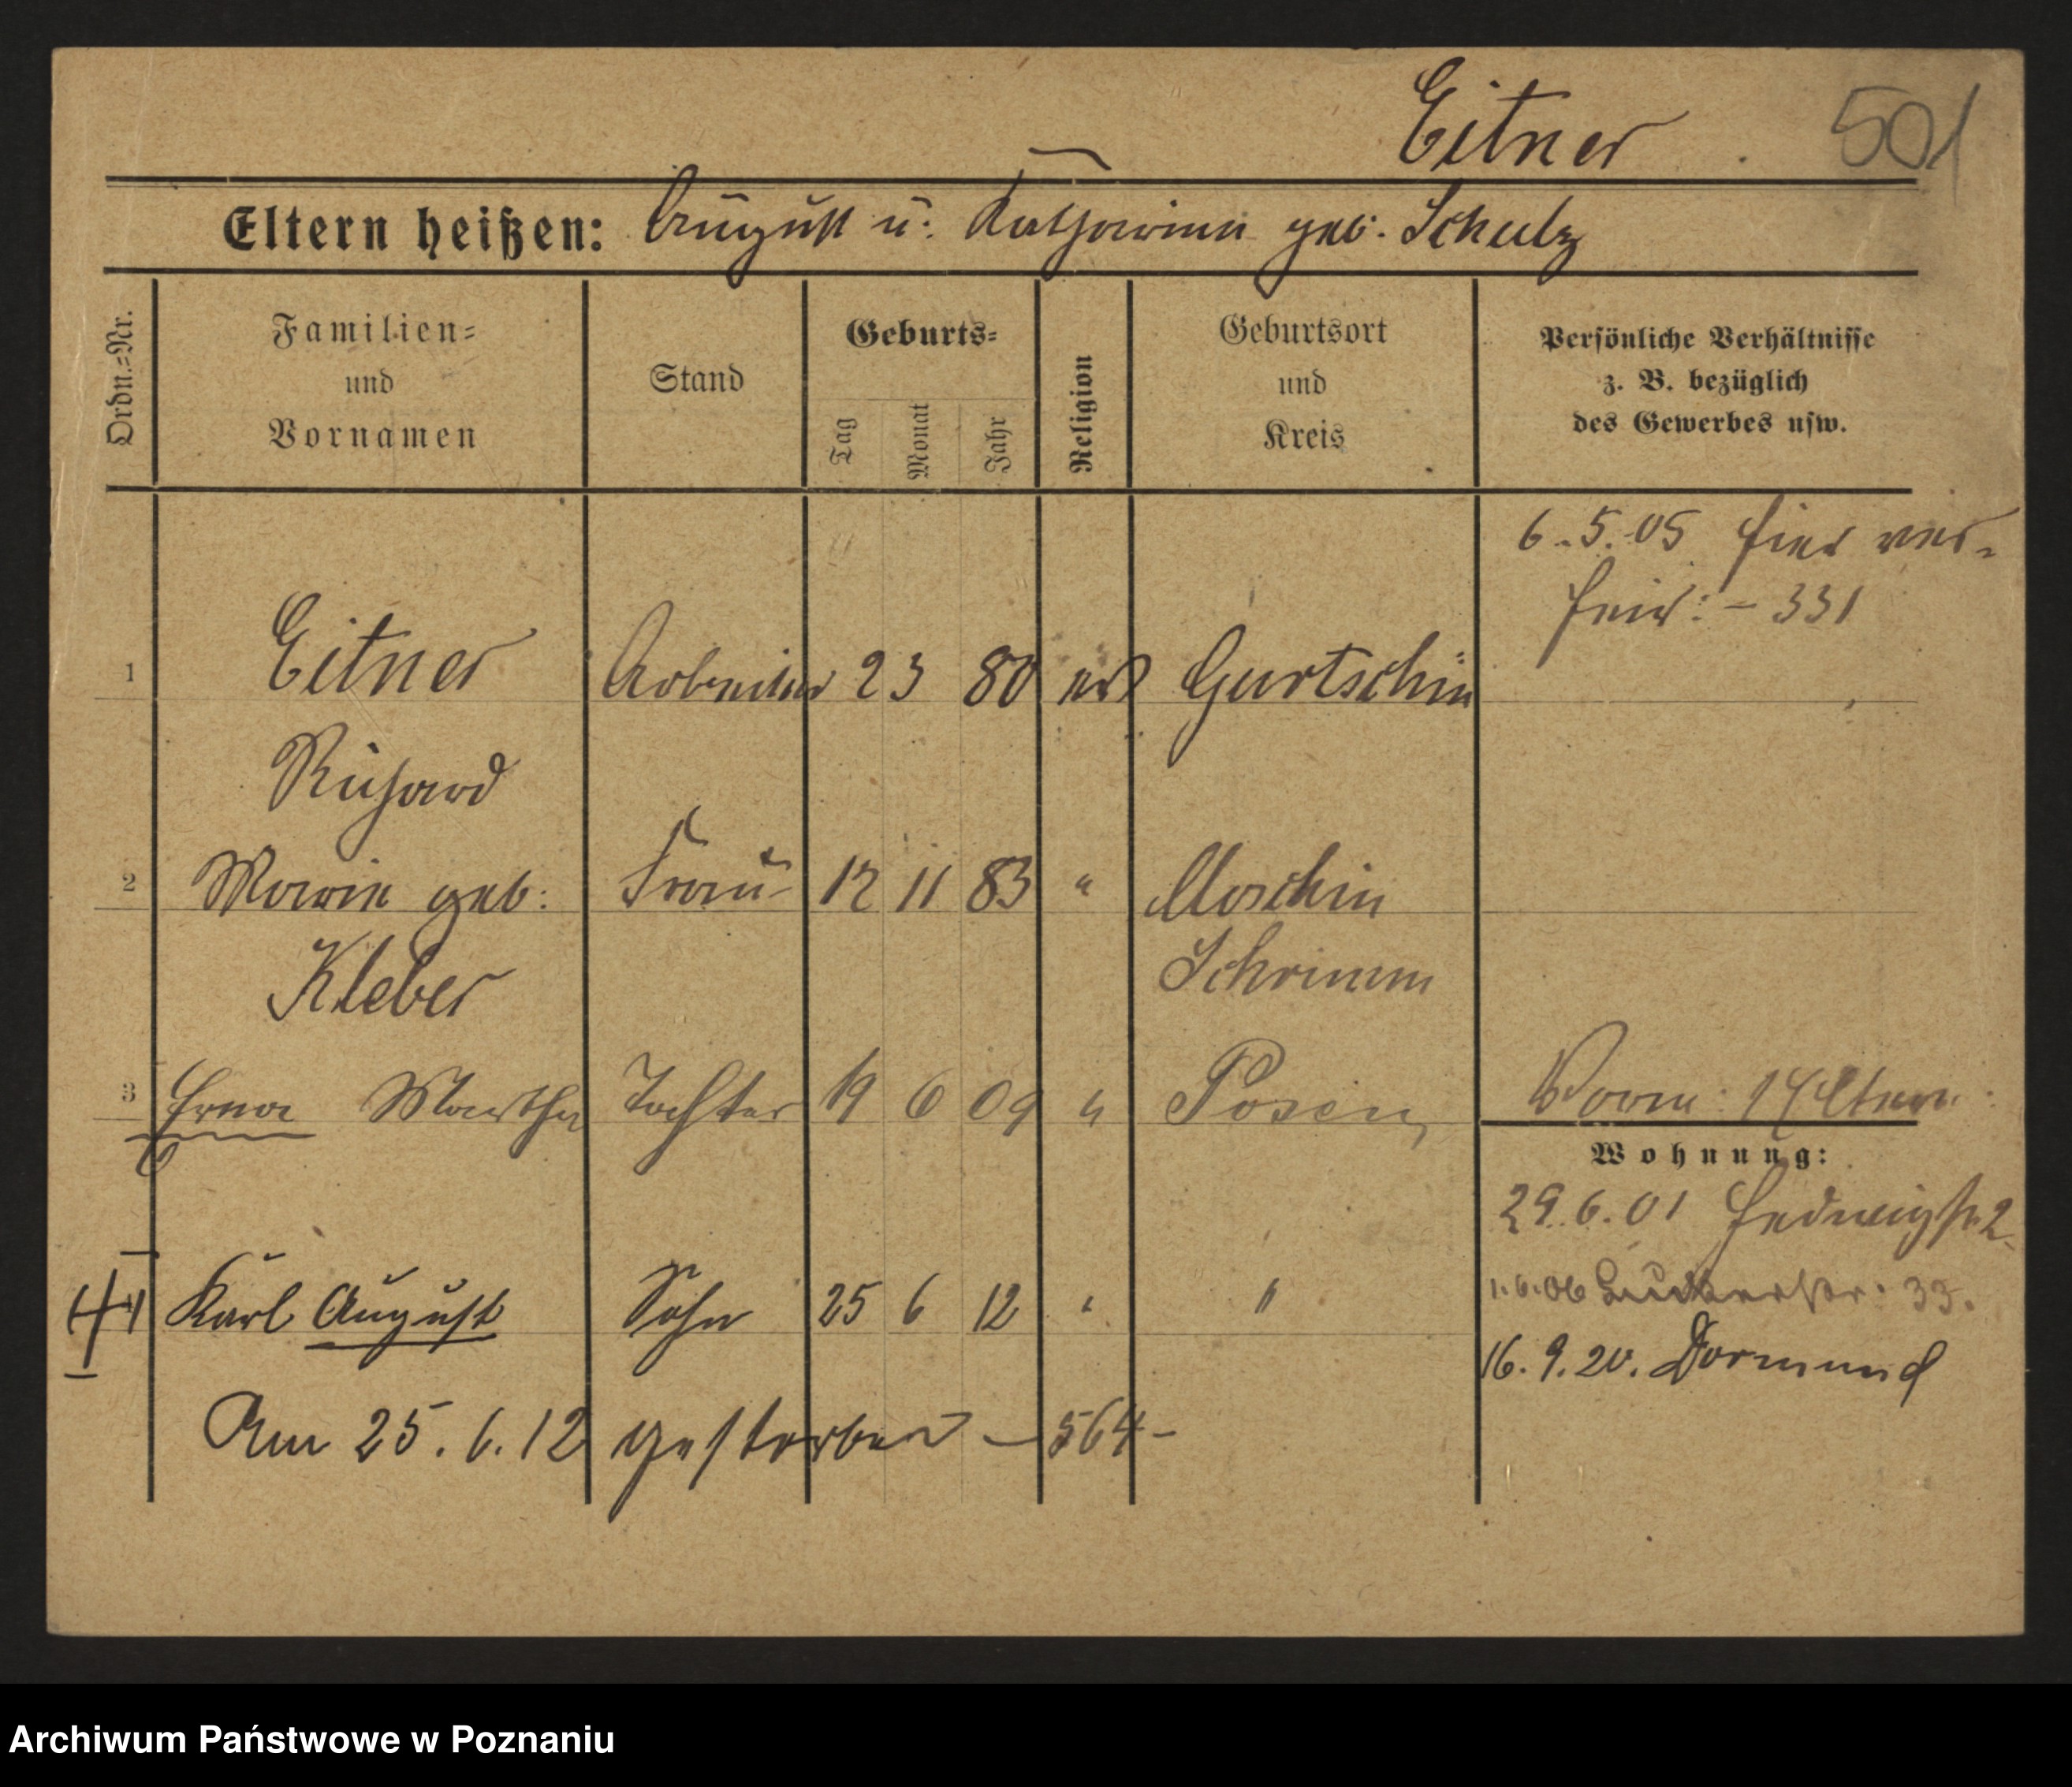 Eitner 501
Eltern heißen: August u. Katharina geb. Schulz
Ordn.=Nr.
Familien=
und
Vornamen
Stand
Geburts=
Tag
Monat
Jahr
Religion
Geburtsort
und
Kreis
Persönliche Verhältnisse
z. B. bezüglich
des Gewerbes usw.
6.5.05 hier ver-
heir: – 331
1 Eitner Arbeiter 2 3 80 Gurtschin
Richard
2 Marie geb: Frau 12 11 83 " Moschin
Kleber Schrimm
3 Erna Martha Tochter 19 6 09 " Posen
Wohnung:
29.6.01 Hedwigstr. 2
1.6.06 33.
4 Karl August Sohn 25 6 12 " "
16.9.20. Dormund
Am 25.6.12 gestorben – 564 –
Archiwum Państwowe w Poznaniu